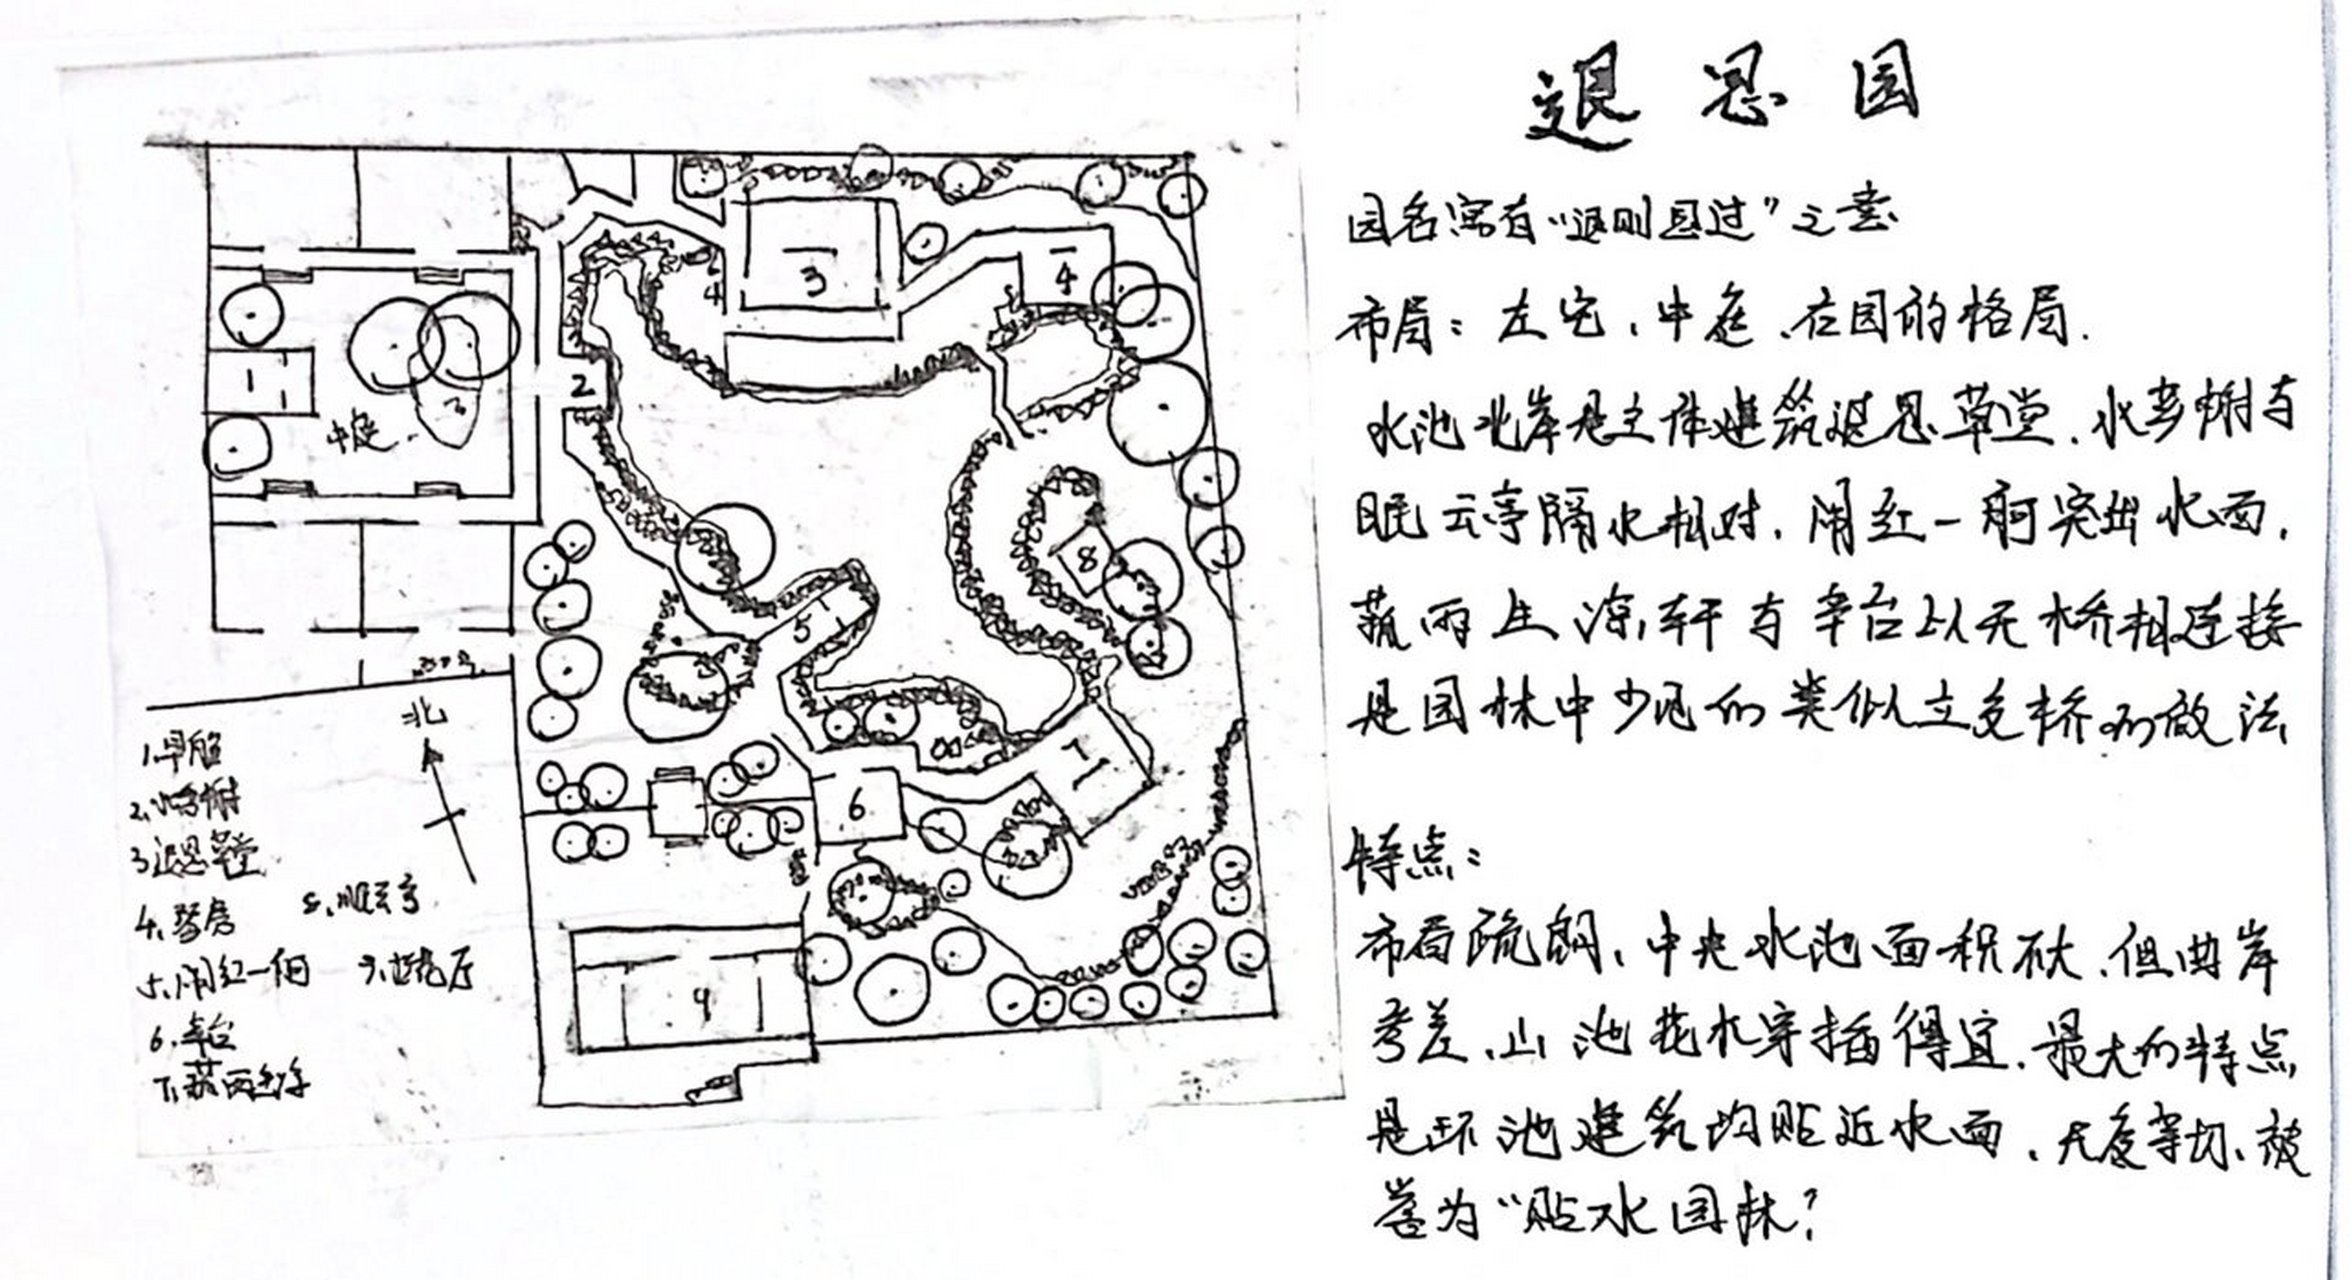 退思园
园名寓有“退则思过”之意
布局：左宅、中庭、右园的格局.
水池北岸是主体建筑退思草堂、水乡榭与
眠云亭隔水相对，闹红一舸突出水面，
菰雨生凉轩与辛台以天桥相连接
是园林中少见的类似立交桥的做法
特点：
布局疏朗，中央水池面积不大、但曲岸
参差、山池花木穿插得宜.最大的特点
是环池建筑均贴近水面、尺度得切、被
誉为“贴水园林”
3
4
2
1
中庭
8
5
7
6
9
北
1.旱船
2.水香榭
3.退思草堂
4.琴房
5.闹红一舸
6.辛台
7.菰雨生凉
8.眠云亭
9.桂花厅